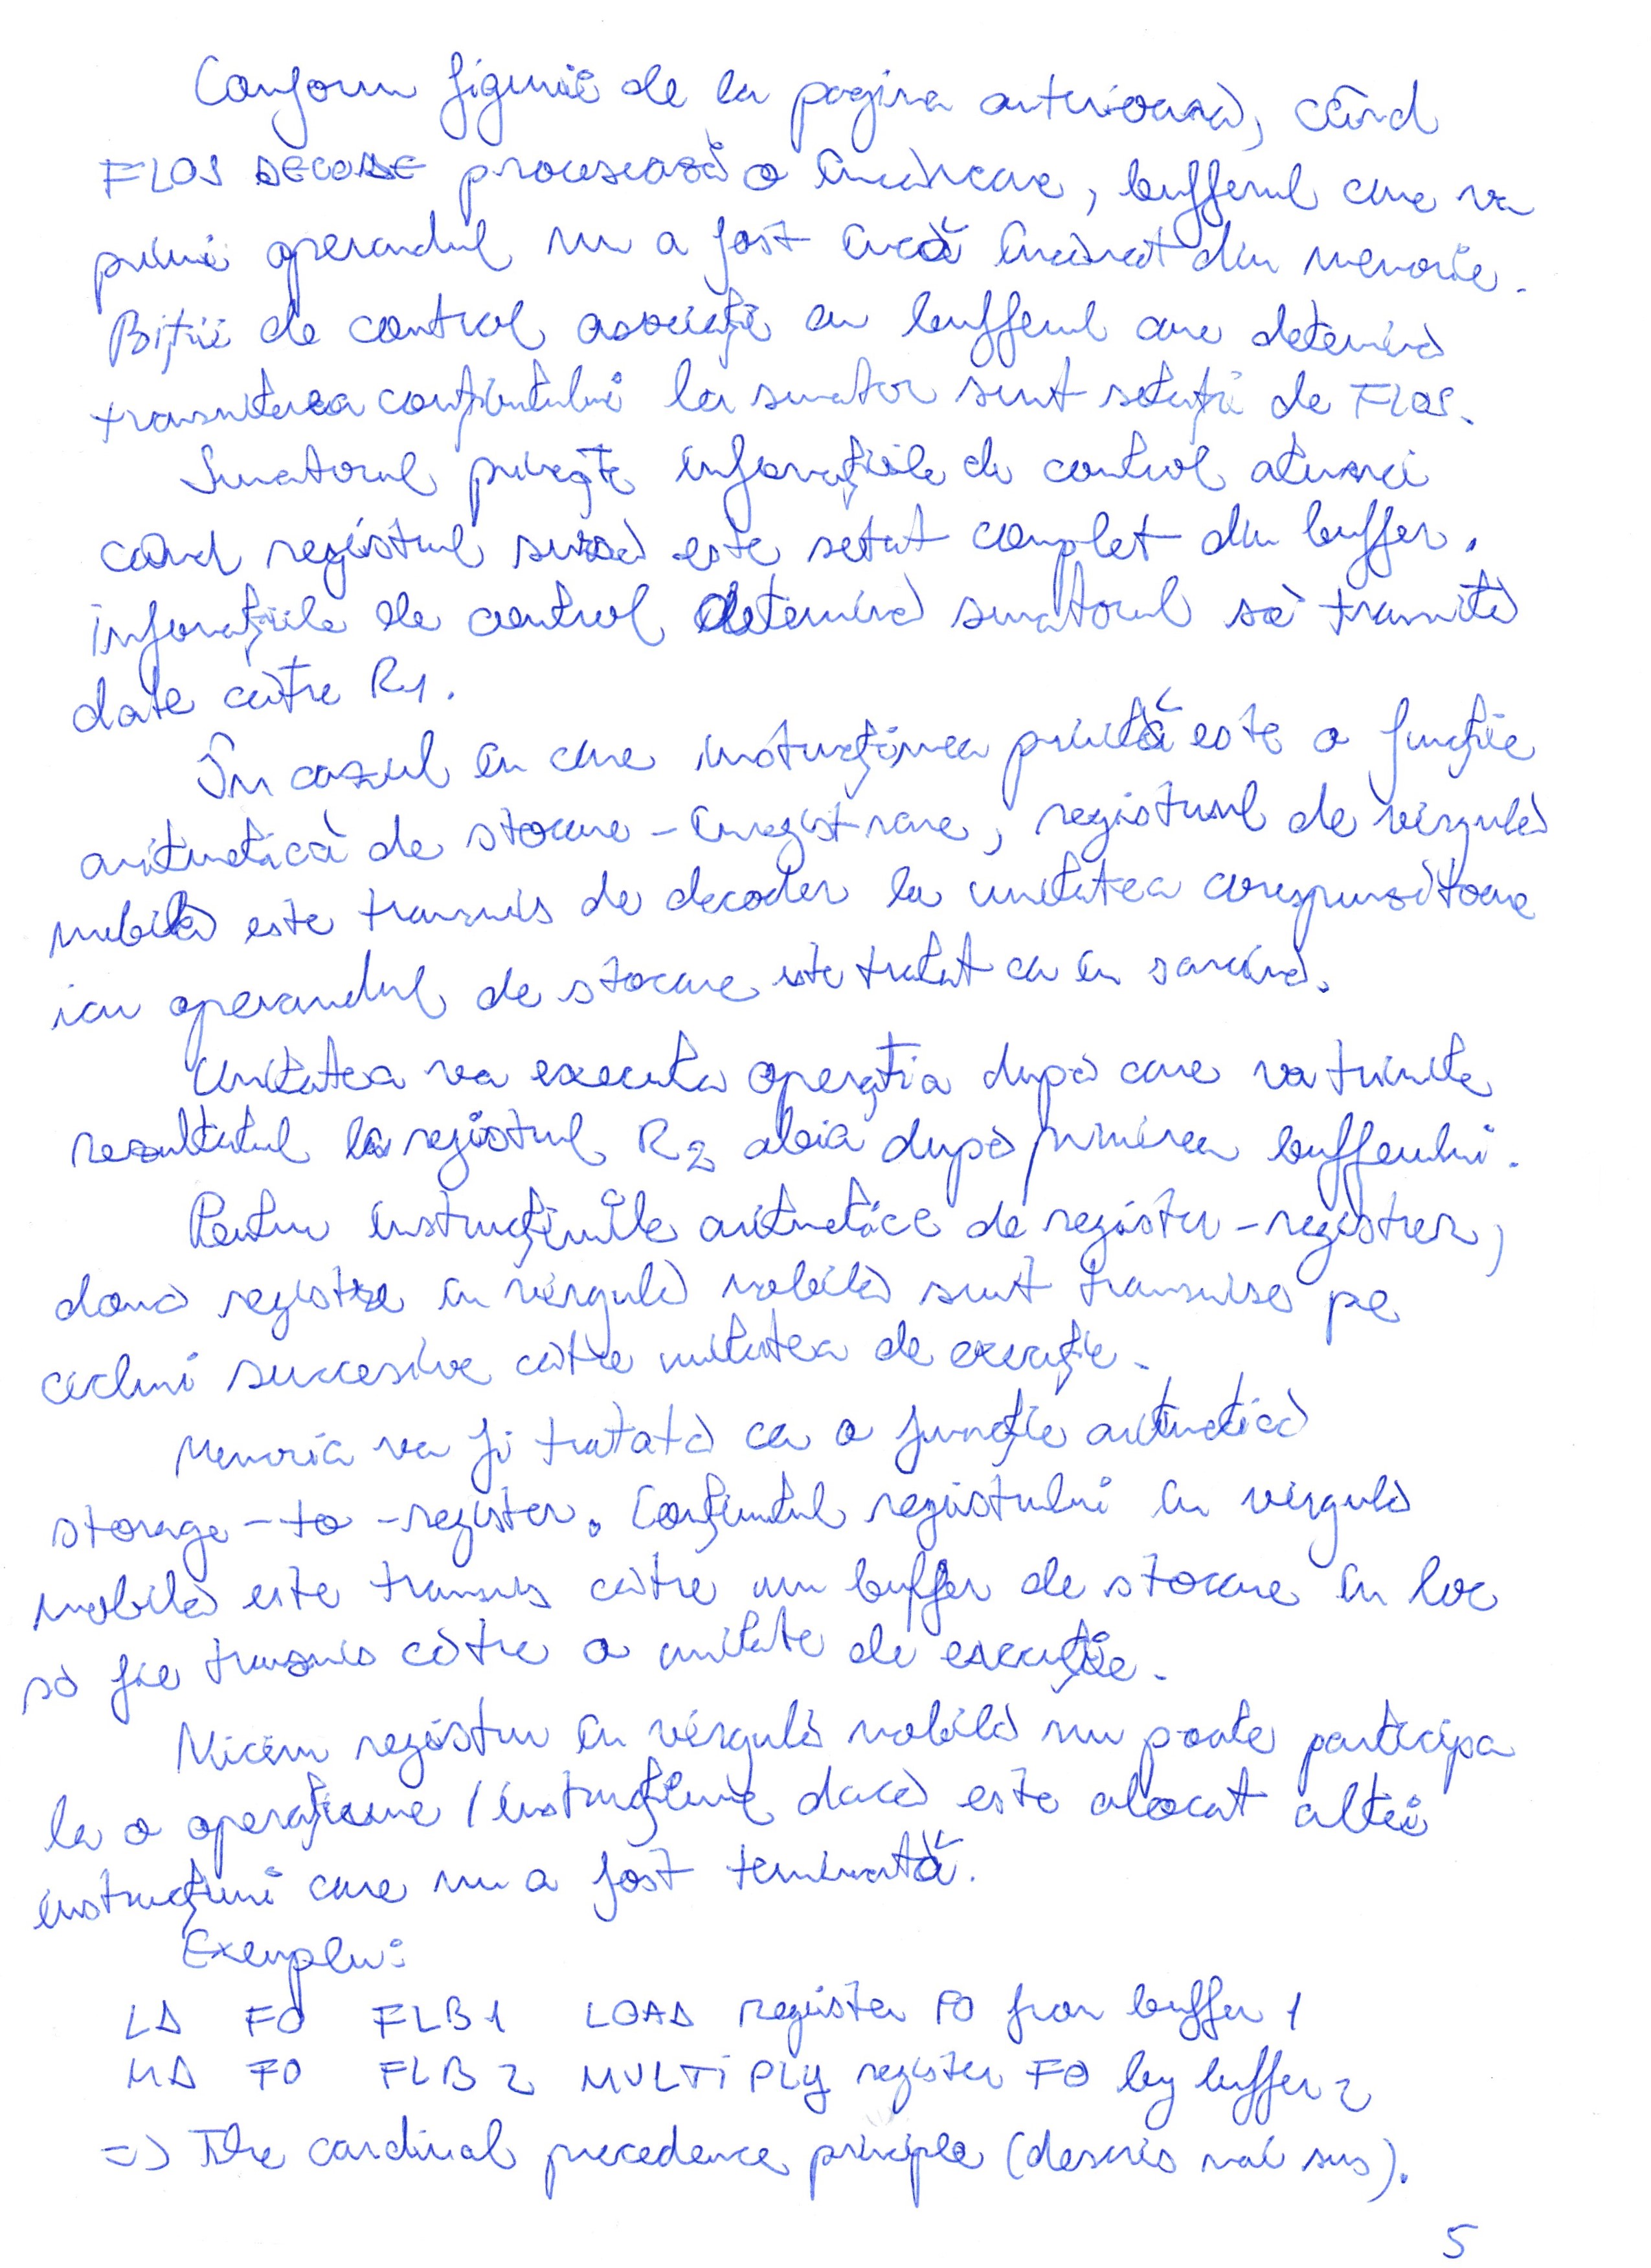 Conform figurii de la pagina anterioară, când
FLOS DECODE procesează o încărcare, bufferul care va
primi operandul nu a fost încă încărcat din memorie.
Biții de control asociați cu bufferul care determină
transmiterea conținutului la sumator sunt setați de FLOS.
Sumatorul primește informațiile de control atunci
când registrul sursă este setat complet din buffer.
informațiile de control determină sumatorul să transmită
date către R1.
În cazul în care instrucținea primită este o funcție
aritmetică de stocare - înregistrare, registrul de virgulă
mobilă este transmis de decoder la unitatea corespunzătoare
iar operandul de stocare este tratat ca în sarcină.
Unitatea va executa operația după care va trimite
rezultatul la registrul R2 abia după primirea bufferului.
Pentru instrucțiunile aritmetice de registru - registru,
două registre în virgulă mobilă sunt transmise pe
cicluri succesive către unitatea de execuție.
Memoria va fi tratată ca o funcție aritmetică
storage - to - register. Conținutul registrului în virgulă
mobilă este transmis către un buffer de stocare în loc
să fie transmis către o unitate de execuție.
Niciun registru în virgulă mobilă nu poate participa
la o operațiune / instrucțiune dacă este alocat altei
instrucțiuni care nu a fost terminată.
Exemplu:
LD F0 FLB1 LOAD register F0 from buffer 1
MD F0 FLB2 MULTIPLY register F0 by buffer 2
=> The cardinal precedence principle (descris mai sus).
5